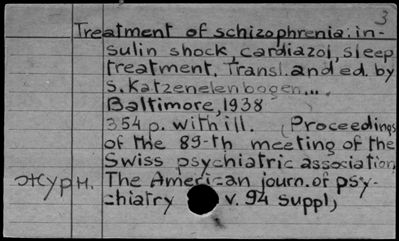 3
Treatment of schizophrenia: in-
sulin shock, cardiazol, sleep
treatment. Transl. and ed. by
S. Katzenelenbogen...
Baltimore, 1938
354 p. with ill. (Proceedings
of the 89-th meeting of the
Swiss psychiatric association
журн. The American journ. of psy-
chiatry v. 94 suppl)